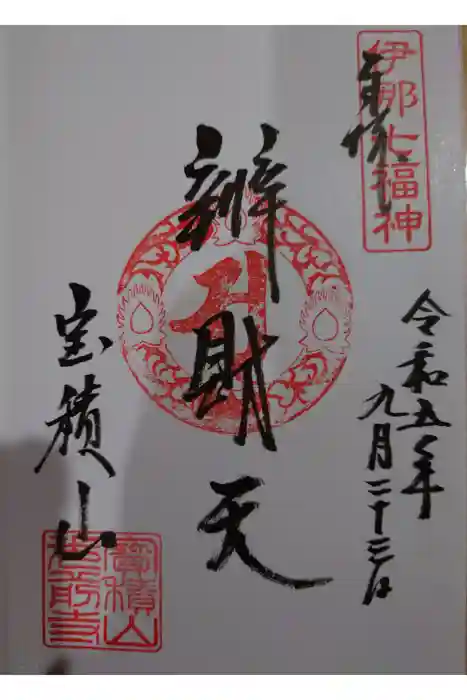 伊那七福神
奉拝
令和五年
九月二十三日
辨財天
宝積山
寶積山
光前寺